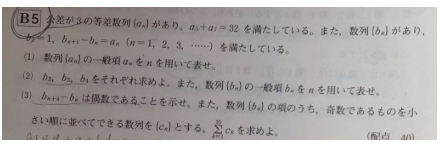 B5 公差が3の等差数列{aₙ}があり、a₃+a₇=32 を満たしている。また、数列{bₙ}があり、
b₁=1, bₙ₊₁−bₙ=aₙ (n=1, 2, 3, ……) を満たしている。
(1) 数列{aₙ}の一般項aₙをnを用いて表せ。
(2) b₂, b₃, b₄をそれぞれ求めよ。また、数列{bₙ}の一般項bₙをnを用いて表せ。
(3) bₙ₊₄−bₙは偶数であることを示せ。また、数列{bₙ}の項のうち、奇数であるものを小
さい順に並べてできる数列を{cₙ}とする。Σ cₖを求めよ。
(配点 40)